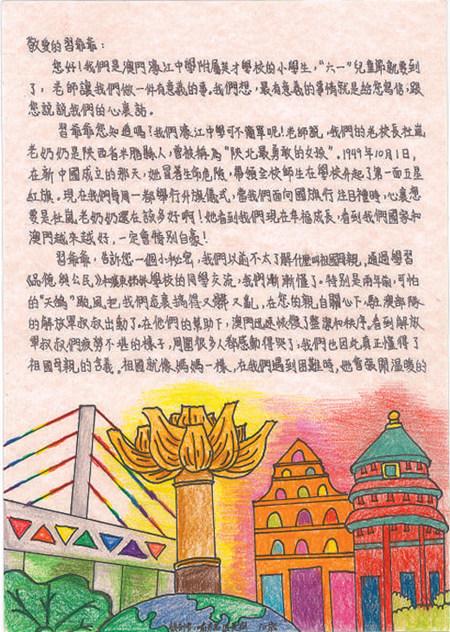 敬爱的習爺爺：
您好！我們是澳門濠江中學附屬英才學校的小學生，“六一”兒童節就要到
了，老師讓我們做一件有意義的事。我們想，最有意義的事情就是給您寫信，跟
您說說我們的心裏話。
習爺爺您知道嗎？我們濠江中學可不簡單呢！老師說，我們的老校長杜嵐
老奶奶是陝西省米脂縣人，曾被稱為“陝北最勇敢的女孩”。1949年10月1日，
在新中國成立的那天，她冒著生命危險，帶領全校師生在學校升起了第一面五星
紅旗。現在我們每周一都舉行升旗儀式，當我們面向國旗行注目禮時，心裏想
要是杜嵐老奶奶還在該多好啊！她看到我們現在幸福成長，看到我們國家和
澳門越來越好，一定會特別自豪！
習爺爺，告訴您一個小秘密，我們以前不太了解什麼叫祖國母親，通過學習
《品德與公民》學校的同學交流，我們漸漸懂了。特別是兩年前，可怕
的“天鴿”颱風把我們家裏搞得又髒又亂，在您的親自關心下，駐澳部隊
的解放軍叔叔出動了。在他們的幫助下，澳門迅速恢復了整潔和秩序。看到解放
軍叔叔們疲勞不堪的樣子，周圍很多人都感動得哭了；我們也因此真正懂得了
祖國母親的含義。祖國就像媽媽一樣，在我們遇到困難時，她會張開溫暖的